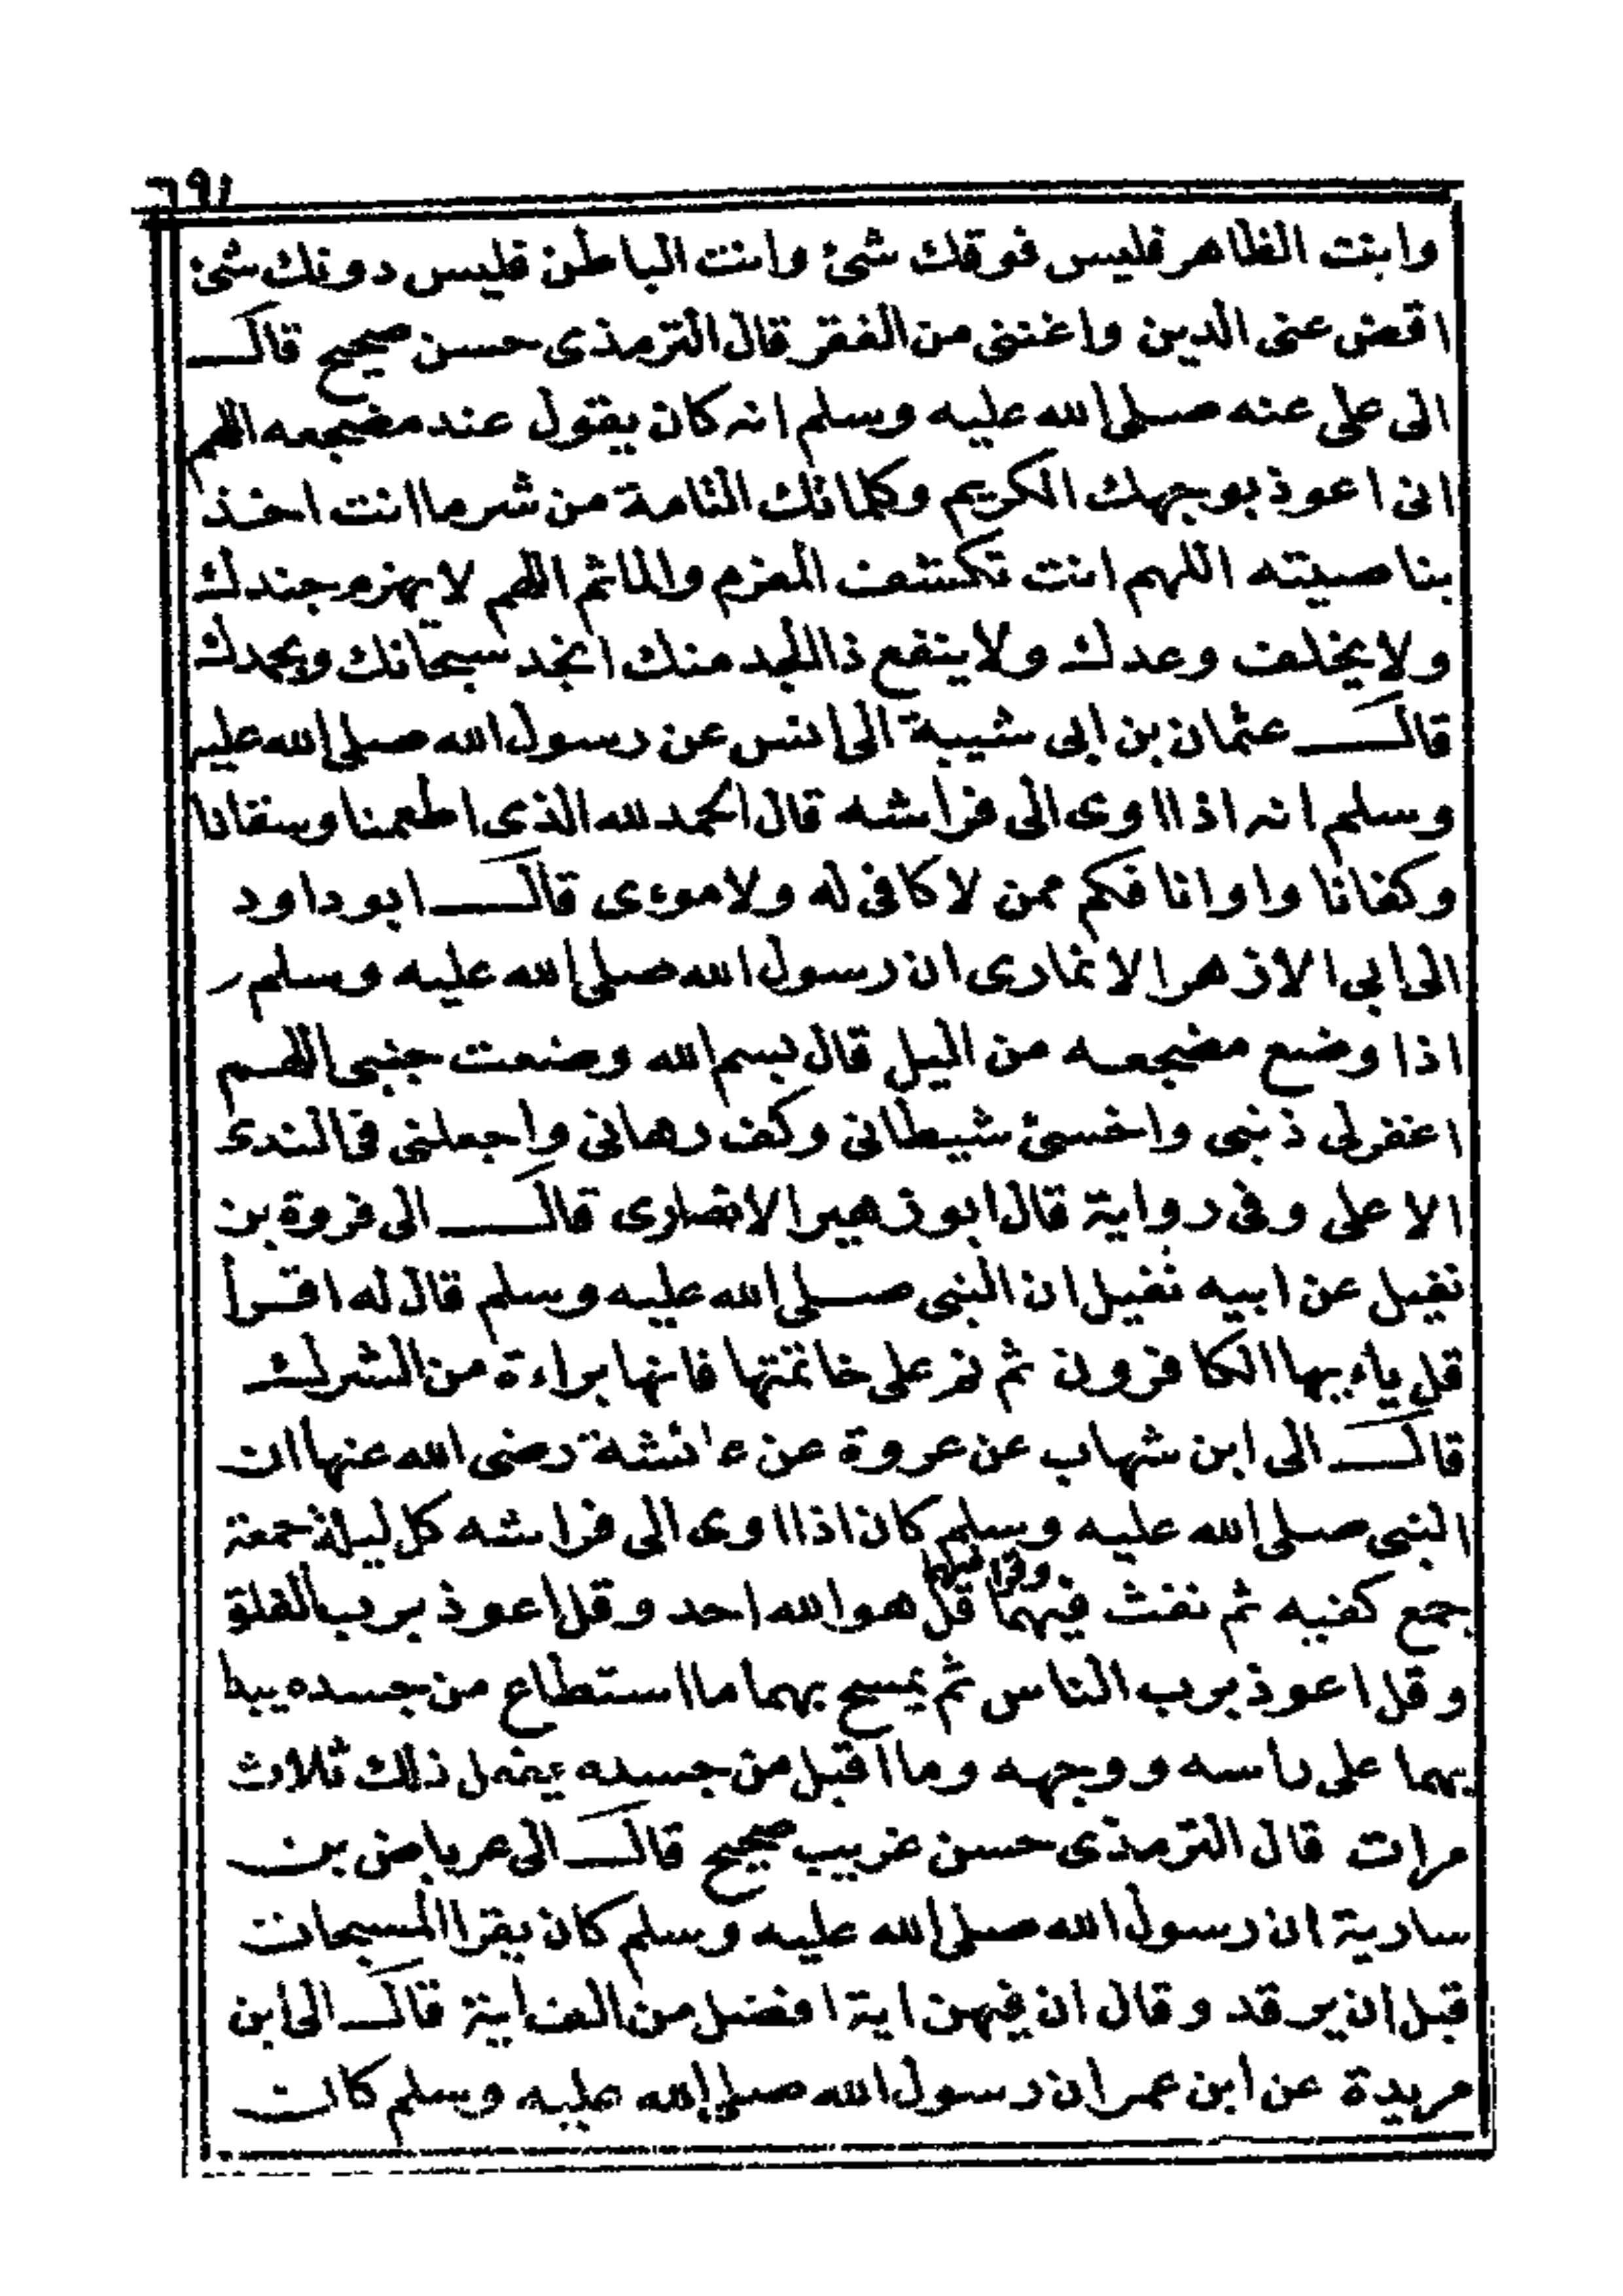 ٦٩١
وانت الظاهر فليس فوقك شئ وانت الباطن فليس دونك شئ
اقض عنى الدين واغننى من الفقر قال الترمذى حسن صحيح قال
الى على عنه صلى الله عليه وسلم انه كان يقول عند مضجعه اللهم
انى اعوذ بوجهك الكريم وكلماتك التامة من شر ما انت اخذ
بناصيته اللهم انت تكشف المغرم والماثم اللهم لا يهزم جندك
ولا يخلف وعدك ولا ينفع ذا الجد منك الجد سبحانك وبحمدك
قال عثمان بن ابى شيبة الى انس عن رسول الله صلى الله عليه
وسلم انه اذا اوى الى فراشه قال الحمد لله الذى اطعمنا وسقانا
وكفانا واوانا فكم ممن لا كافى له ولا موءى قال ابو داود
الى ابى الازهر الانمارى ان رسول الله صلى الله عليه وسلم
اذا وضع مضجعه من اليل قال بسم الله وضعت جنبى اللهم
اغفر لى ذنبى واخسئ شيطانى وكف رهانى واجعلنى فى الندى
الاعلى وفى رواية قال ابو زهير الانصارى قال الى فروة بن
نفيل عن ابيه نفيل ان النبى صلى الله عليه وسلم قال له اقرأ
قل ياءيها الكافرون ثم نم على خاتمتها فانها براءة من الشرك
قال الى ابن شهاب عن عروة عن عائشة رضى الله عنها ان
النبى صلى الله عليه وسلم كان اذا اوى الى فراشه كل ليلة جمعة
جمع كفيه ثم نفث فيهما وقرا فيهما قل هو الله احد وقل اعوذ برب الفلق
وقل اعوذ برب الناس ثم يمسح بهما ما استطاع من جسده يبدا
بهما على راسه ووجهه وما اقبل من جسده يفعل ذلك ثلاث
مرات قال الترمذى حسن غريب صحيح قال الى عرباض بن
سارية ان رسول الله صلى الله عليه وسلم كان يقرا المسبحات
قبل ان يرقد وقال ان فيهن اية افضل من الف اية قال الى ابن
مريدة عن ابن عمر ان رسول الله صلى الله عليه وسلم كان